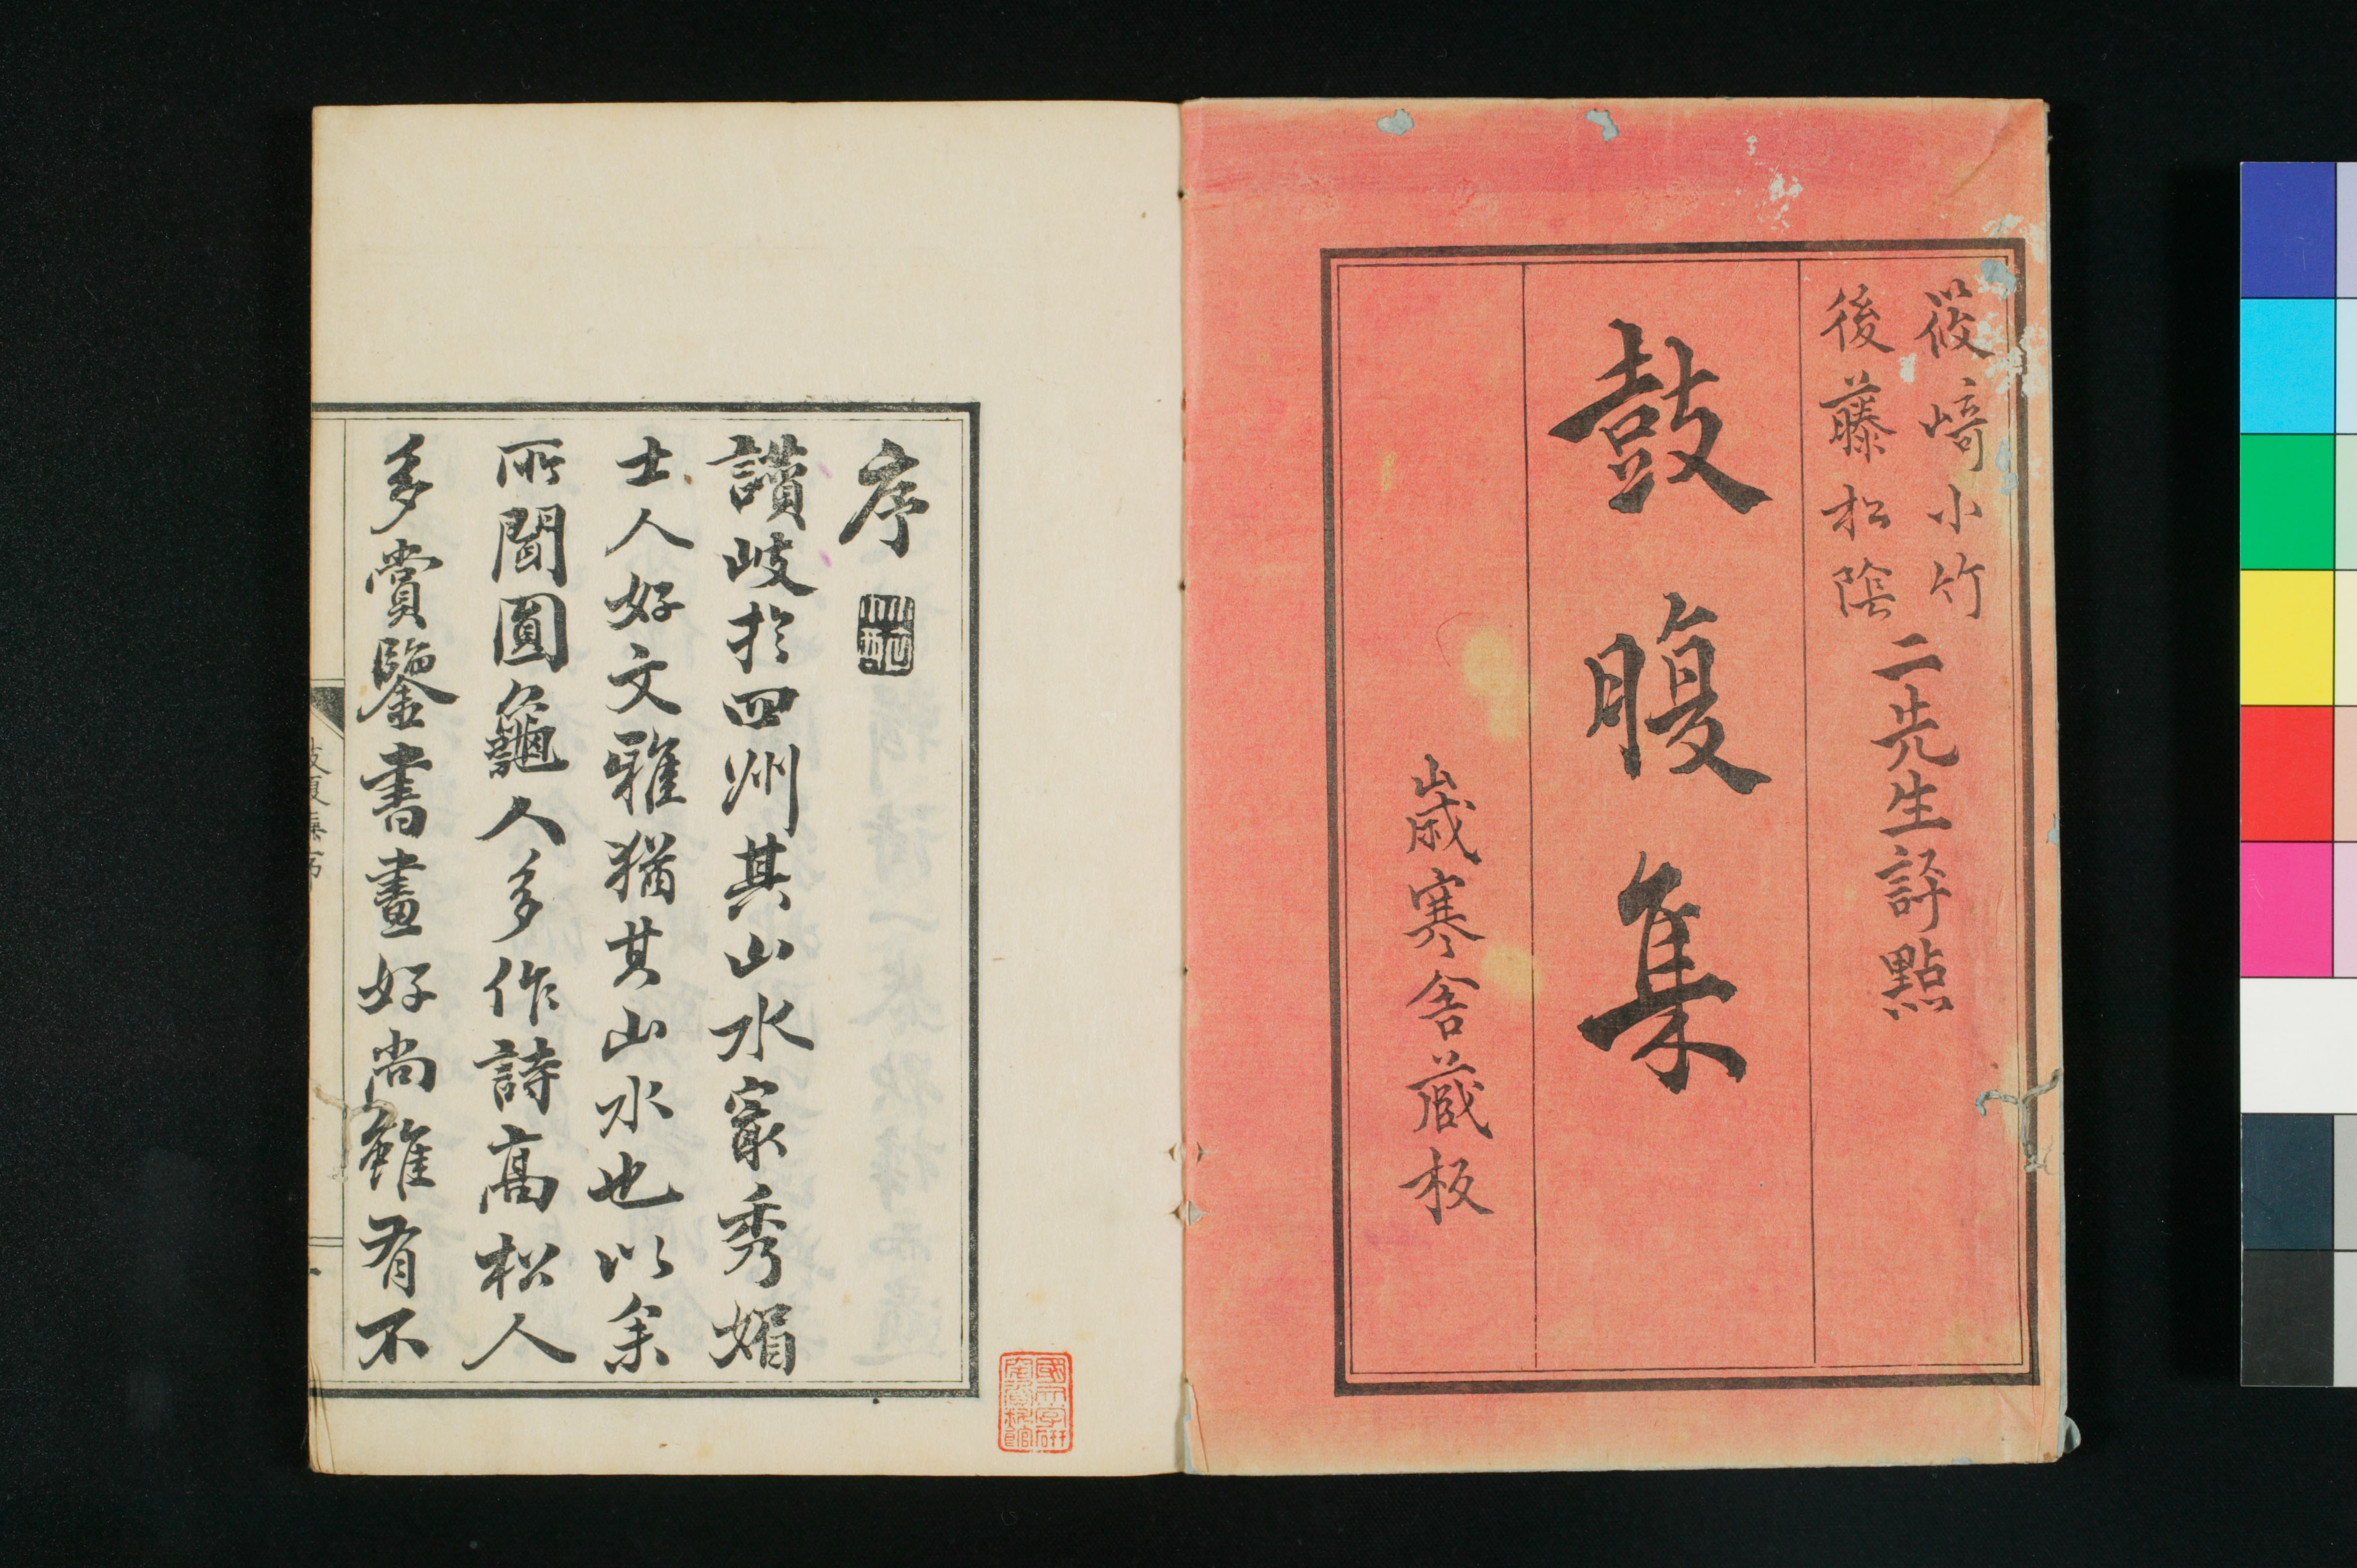 筱﨑小竹
後藤松陰
二先生評點
鼓腹集
歳寒舍蔵板
序
讃岐於四州其山水冣秀媚
士人好文雅猶其山水也以余
所聞圓龜人多作詩高松人
多賞鑒書畫好尚雖有不